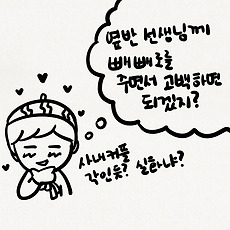 옆반 선생님께
빼빼로를
주면서 고백하면
되겠지?
사내커플
각인듯? 실화냐?